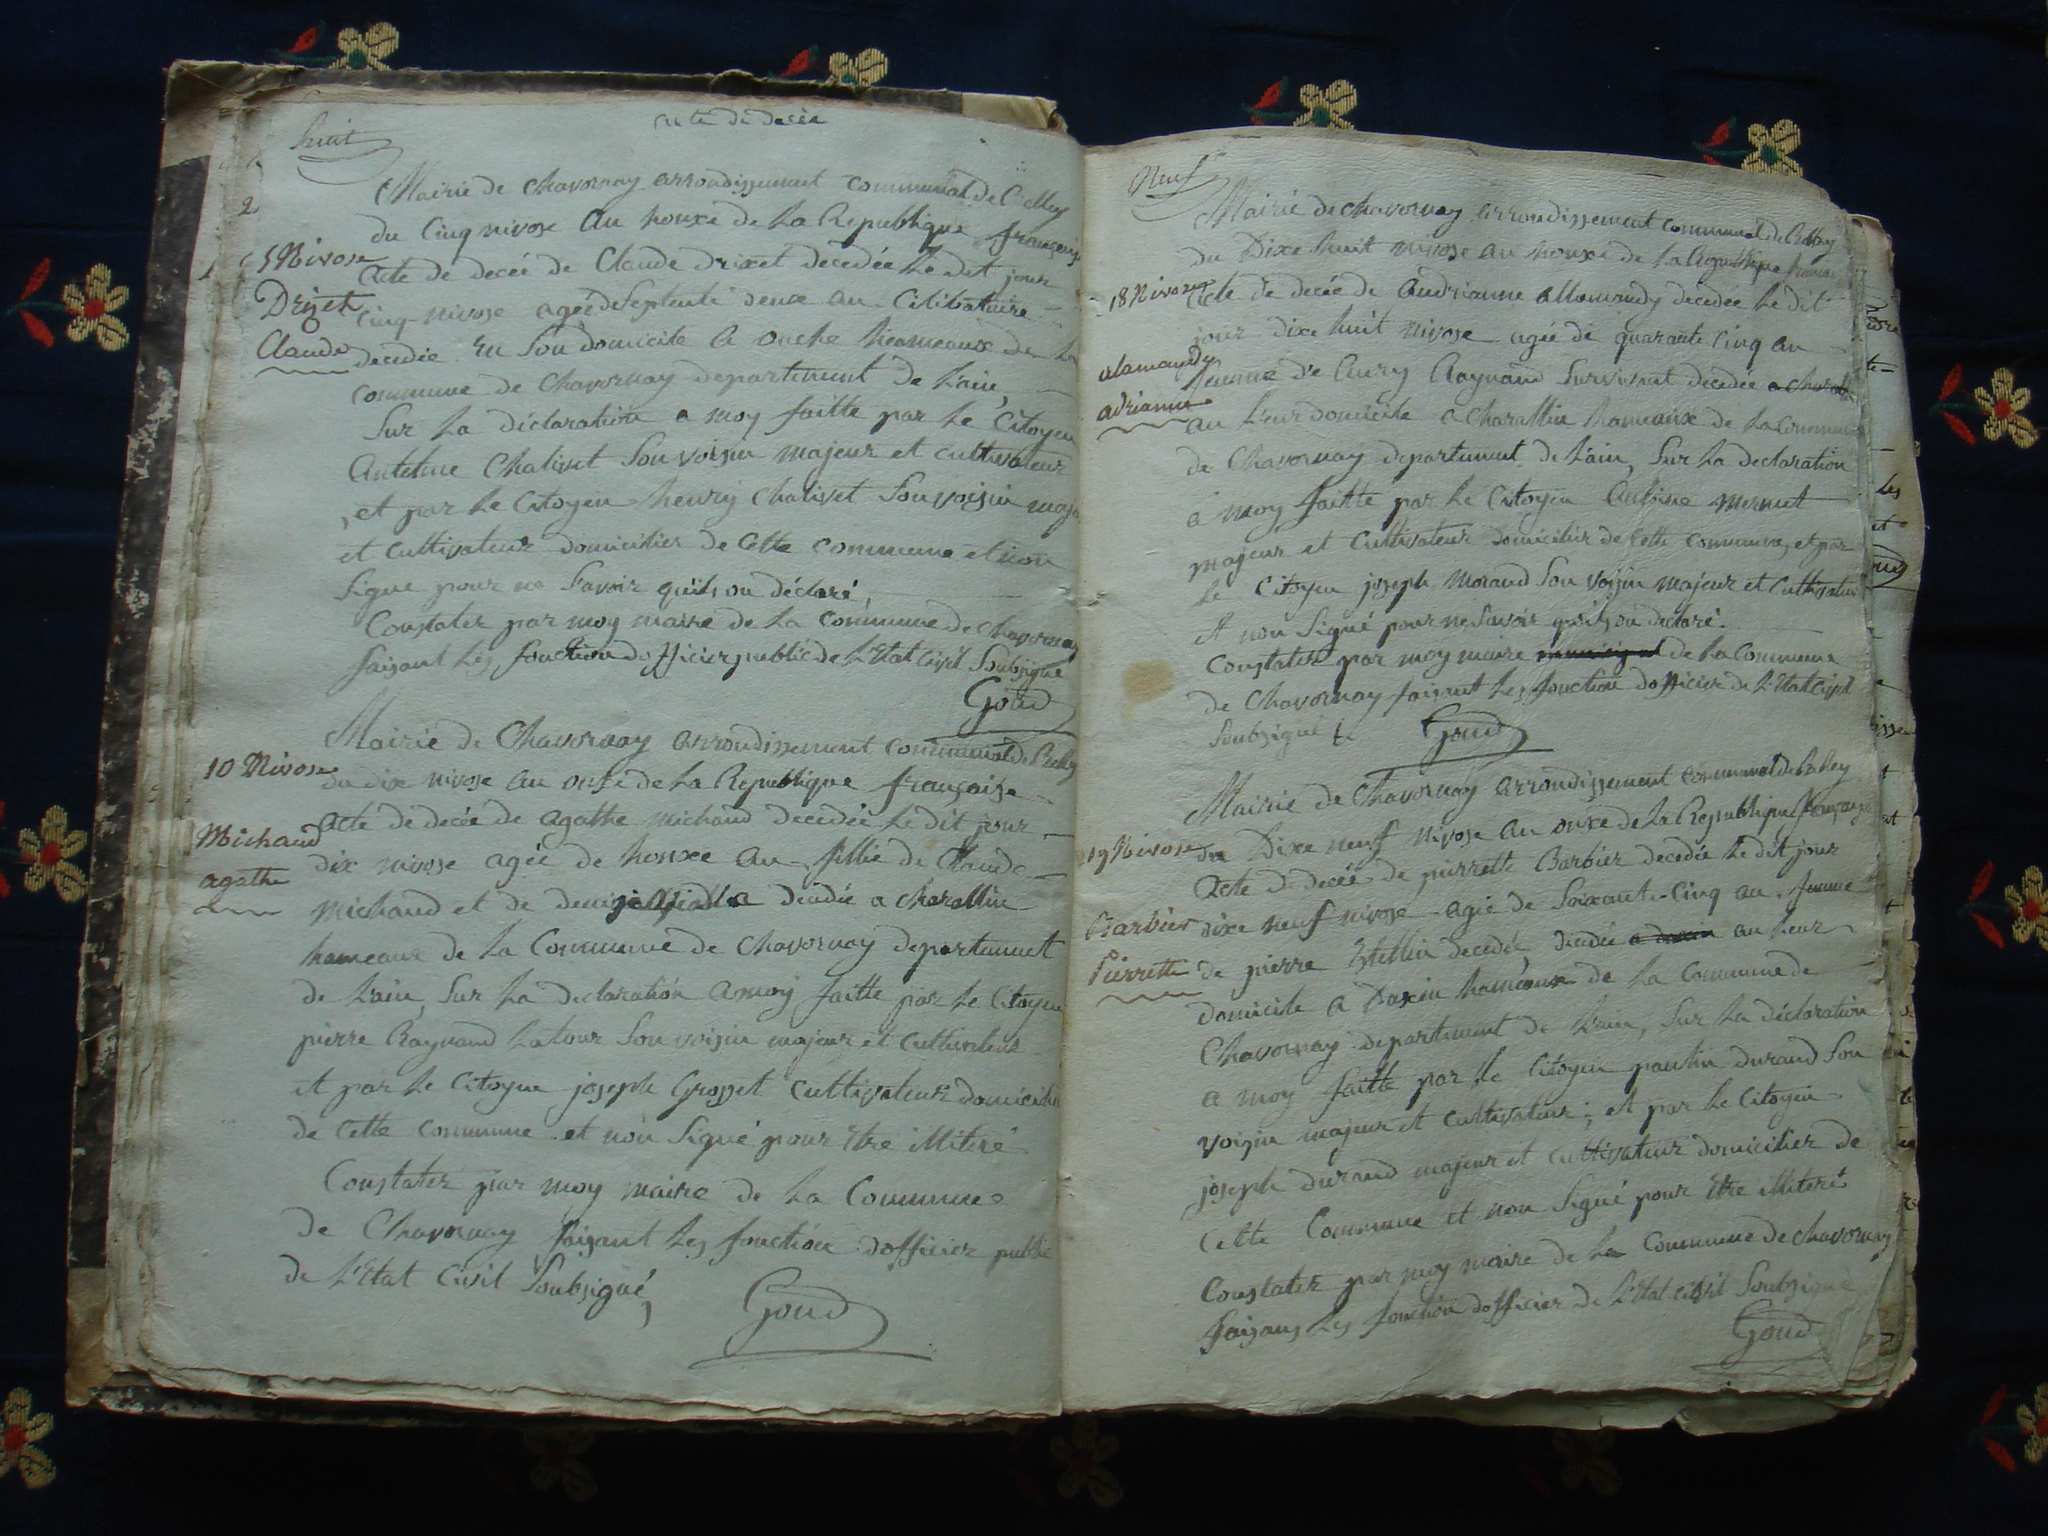 acte de decée
huit
2
Mairie de chavornay arrondissement communal de Belley
du Cinq nivose an honze de la Republique française
5 Nivose
acte de decée de Claude drizet decedée le dit jour
Drizet
Cinq nivose agée de septente deux an Célibataire
Claude
decedée en son domicile a ouche heameaux de la
commune de Chavornay departement de l'ain,
Sur la déclaration a moy faitte par le Citoyen
antelme Chalivet son voisin majeur et cultivateur
, et par le Citoyen henry Chalivet son voisin maje
et cultivateur domicilier de Cette commune et non
signe pour ne savoir quils on déclaré,
Constater par moy maire de la Commune de chavornay
faisant les fonction dofficier public de l'Etat Civil Soubsigne
Goud
Mairie de Chavornay arrondissement communal de Belley
10 Nivose
du dix nivose an onze de la Republique française
acte de decée de agathe michaud decedée le dit jour
Michaud
dix nivose agée de honze an fillie de Claude
agathe
michaud et de decedée a charallin
hameaux de la Commune de Chavornay departement
de l'ain, Sur la declaration a moy faitte par le Citoyen
pierre Raynaud latour son voisin majeur et Cultivateur
et par le Citoyen joseph Grosset Cultivateur domicilié
de Cette commune et non signé pour Etre illiteré
Constater par moy maire de la Commune
de Chavornay faisant les fonction dofficier public
de l'Etat Civil Soubsigné,
Goud
Neuf
Mairie de chavornay arrondissement communal de Belley
du Dixe huit nivose an honze de la Republique
18 Nivose
acte de decée de andrianne allomandy decedée le dit
jour dixe huit nivose agée de quarante Cinq an
alamandy
femme de Raynaud Survivant decedée a
adrianne
au leur domicile a Charallin hameaux de la Commune
de Chavornay departement de l'ain, Sur la declaration
a moy faitte par le Citoyen
majeur et Cultivateur domicilier de Cette Commune, et par
le Citoyen joseph morand son voisin majeur et Cultivateur
et non Signé pour ne Savoir quils on declaré.
Constater par moy maire de la Commune
de Chavornay faisant les fonction dofficier de l'Etat Civil
Soubsigné
Goud
Mairie de Chavornay arrondissement communal de Belley
19 Nivose
du Dixe neuf nivose an onze de la Republique française
acte de decée de pierrette Barbier decedée le dit jour
Barbier
dixe neuf nivose agée de soixante-Cinq an femme
Pierrette
de pierre decedé, decedée au leur
domicile a Dazin hameaux de la Commune de
Chavornay departement de l'ain, Sur la déclaration
a moy faitte par le Citoyen paulin durand son
voisin majeur et cultivateur; et par le Citoyen
joseph durand majeur et cultivateur domicilier de
Cette Commune et non Signé pour Etre illiteré
Constater par moy maire de la Commune de chavornay
faisans les fonction dofficier de l'Etat Civil Soubsigne
Goud